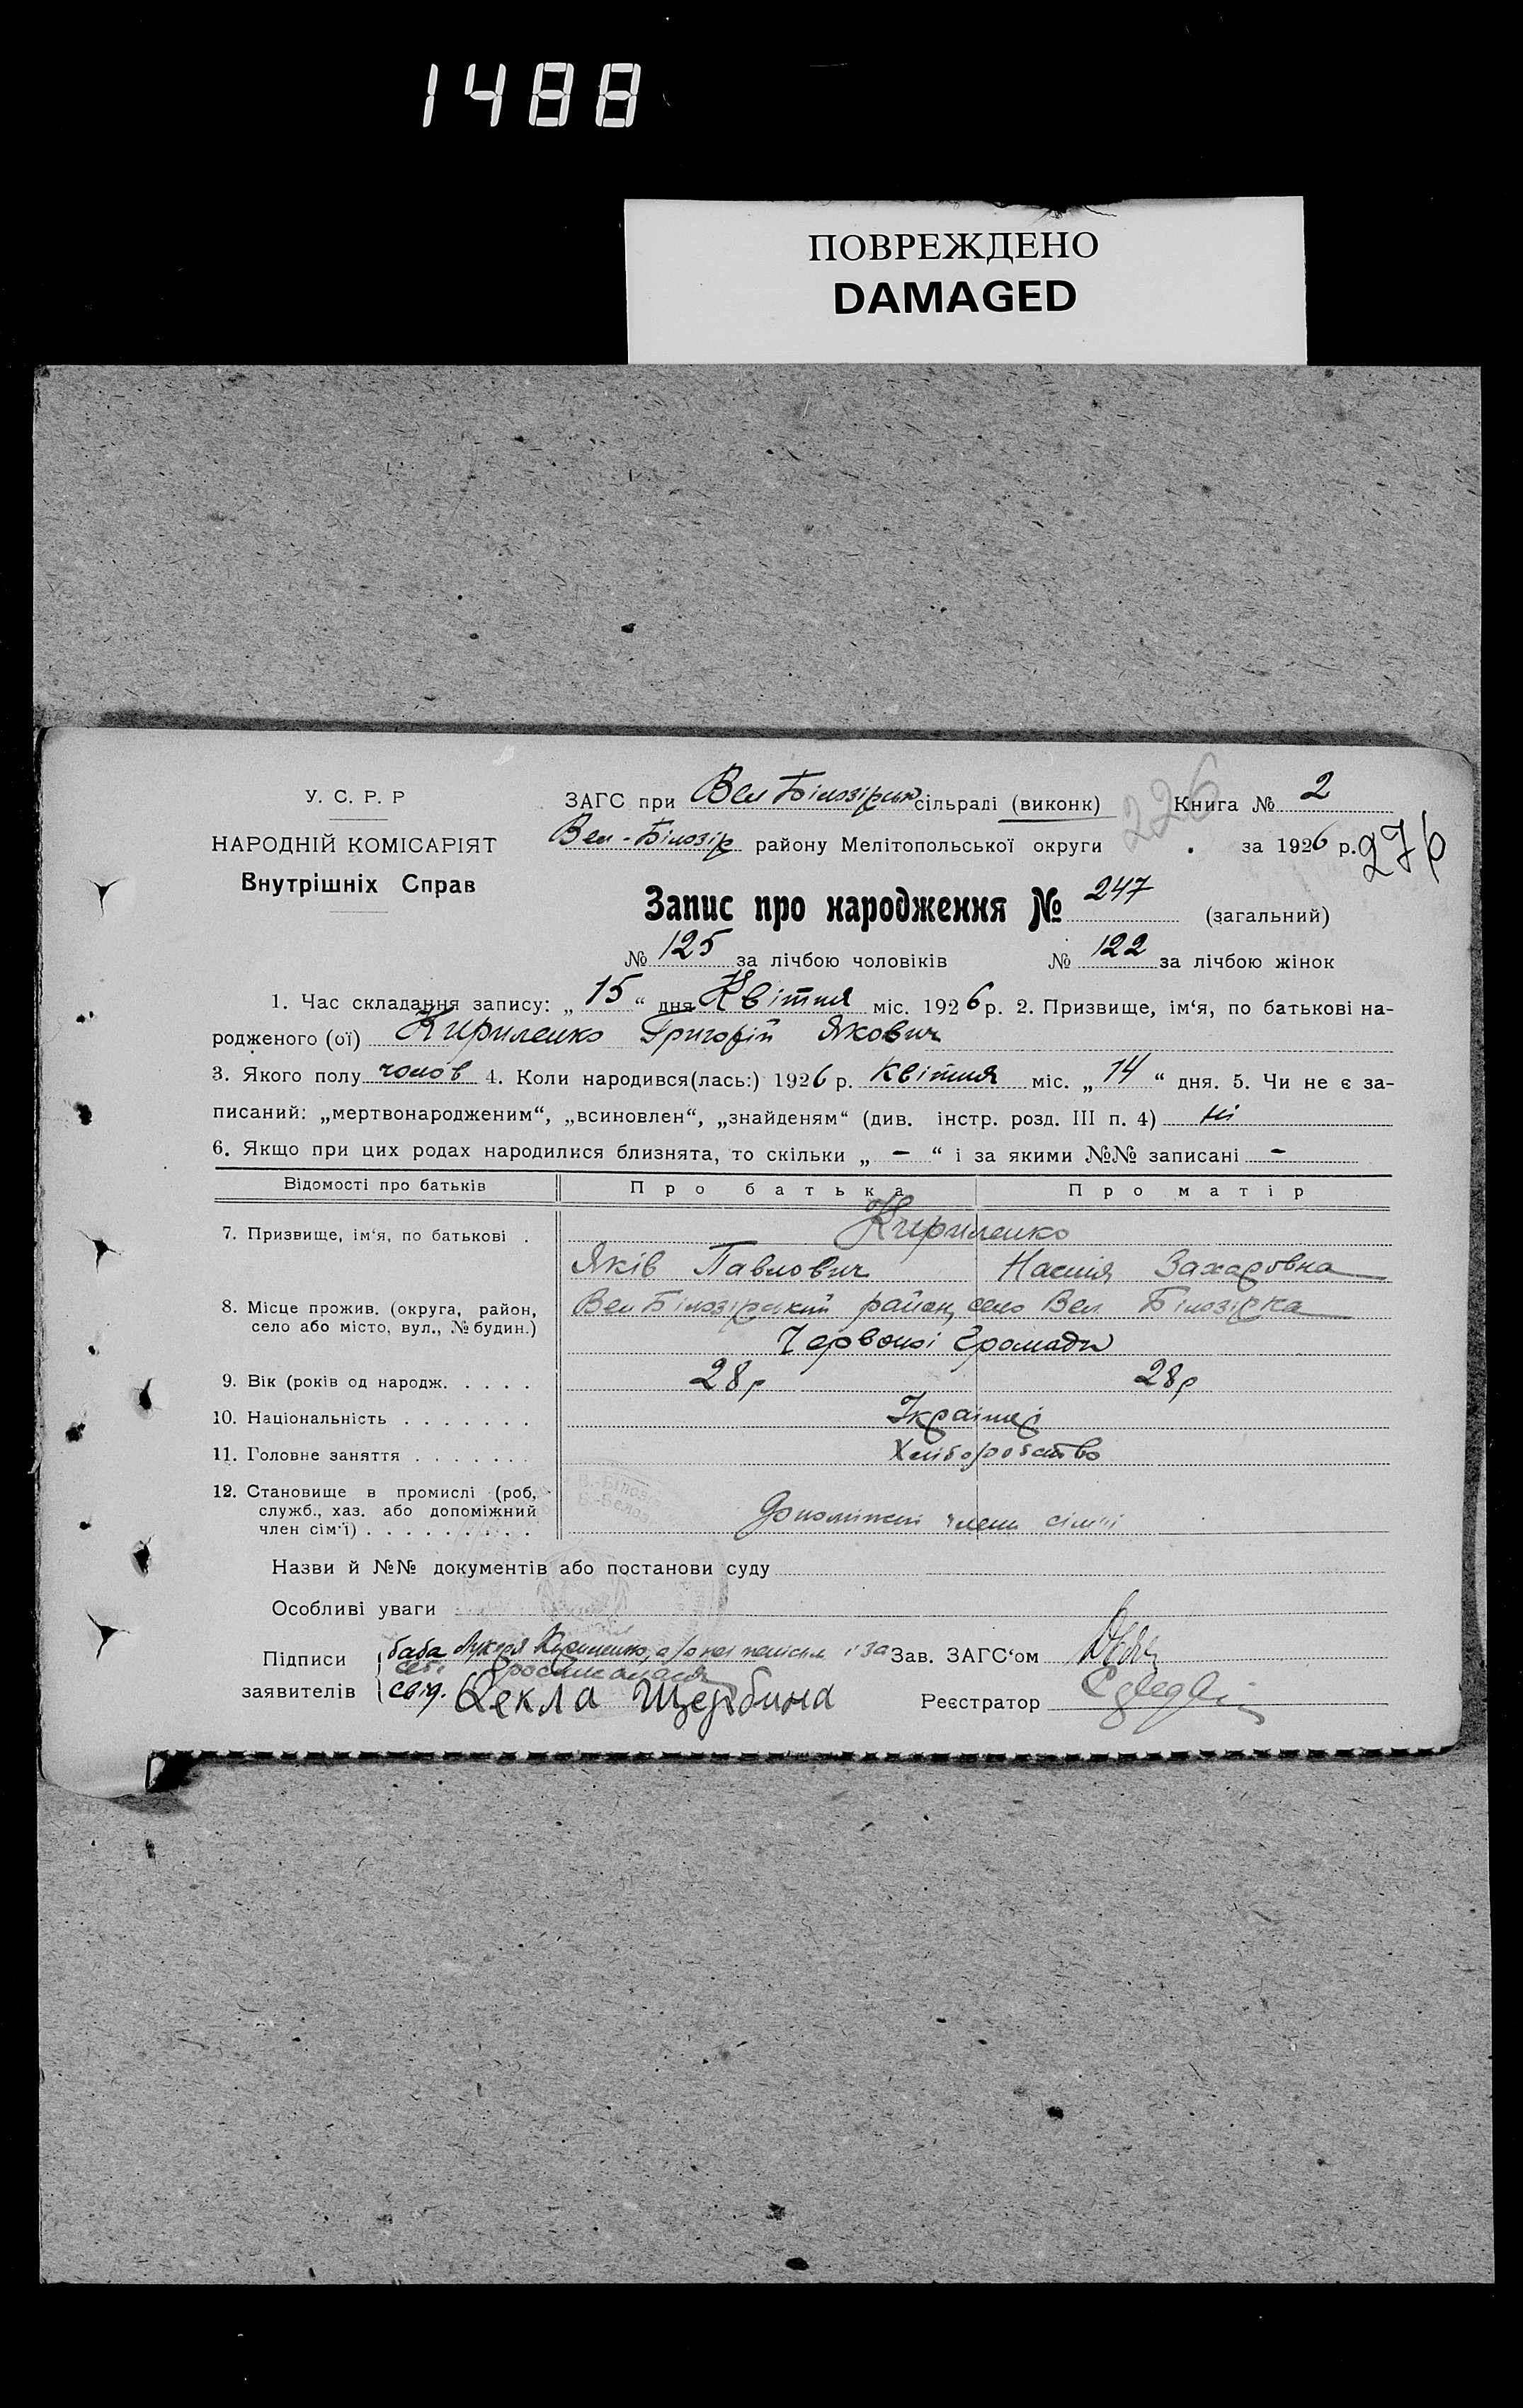 1488
ПОВРЕЖДЕНО
DAMAGED
У. С. Р. Р
НАРОДНІЙ КОМІСАРІЯТ
Внутрішніх Справ
ЗАГС при Вел Білозірск сільраді (виконк) 226 Книга № 2
Вел-Білозір району Мелітопольської округи за 1926 р. 276
Запис про народження № 247 (загальний)
№ 125 за лічбою чоловіків № 122 за лічбою жінок
1. Час складання запису: „ 15 “ дня Квітня міс. 1926 р. 2. Призвище, ім‘я, по батькові на-
родженого (ої) Кириленко Григорій Якович
3. Якого полу чолов 4. Коли народився(лась:) 1926 р. Квітня міс. „ 14 “ дня. 5. Чи не є за-
писаний: „мертвонародженим“, „всиновлен“, „знайденям“ (див. інстр. розд. III п. 4) ні
6. Якщо при цих родах народилися близнята, то скільки „ - “ і за якими №№ записані -
Відомості про батьків Про батька Про матір
7. Призвище, ім‘я, по батькові . Кириленко
Яків Павлович Настя Захаровна
8. Місце прожив. (округа, район,
село або місто, вул., № будин.)
Вел Білозірський район, село Вел. Білозірка
Червоної Громади
9. Вік (років од народж. . . . . 28 р 28 р
10. Національність . . . . . . . Українці
11. Головне заняття . . . . . . . Хліборобство
12. Становище в промислі (роб,
служб., хаз. або допоміжний
член сім‘ї) . . . . . . . . .
Допоміжні члени сім'ї
Назви й №№ документів або постанови суду
Особливі уваги
Підписи
заявителів
баба Лукерія Кириленко, а за
свід. Текла Щербина
Зав. ЗАГС‘ом
Реєстратор